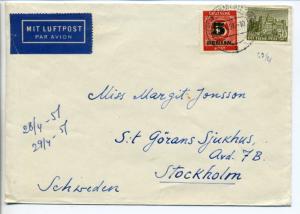 MIT LUFTPOST
PAR AVION
DEUTSCHE
5
BERLIN
Miss Margit Jonsson
28/4 - 51
29/4 - 51
S:t Görans Sjukhus,
Avd. 7B.
Stockholm
Schweden